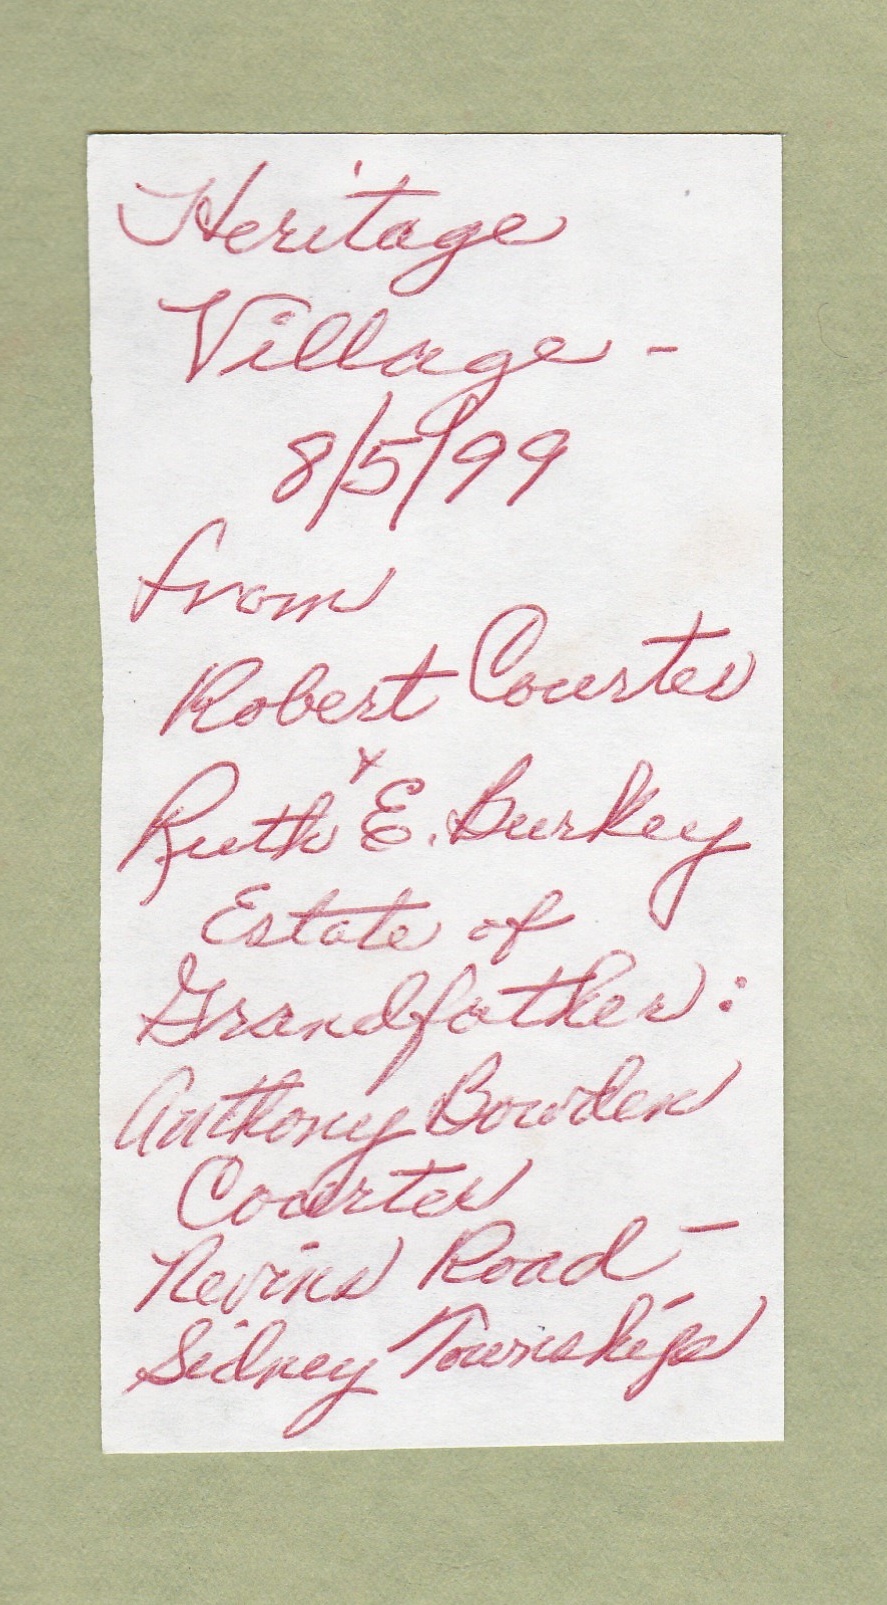 Heritage
Village -
8/5/99
from
Robert Courter
+
Ruth E. Burkey
Estate of
Grandfather:
Anthony Bowden
Courter
Nevins Road -
Sidney Township